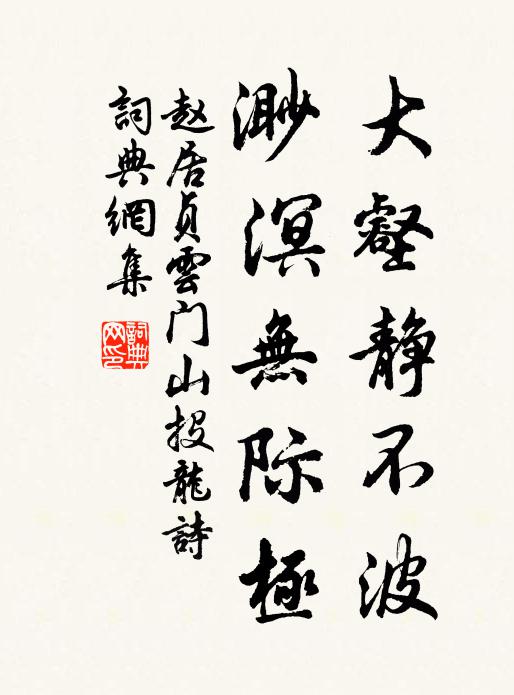 大壑静不波
渺溟無际極
赵居貞雲门山投龍詩
詞典網集
詞典网印